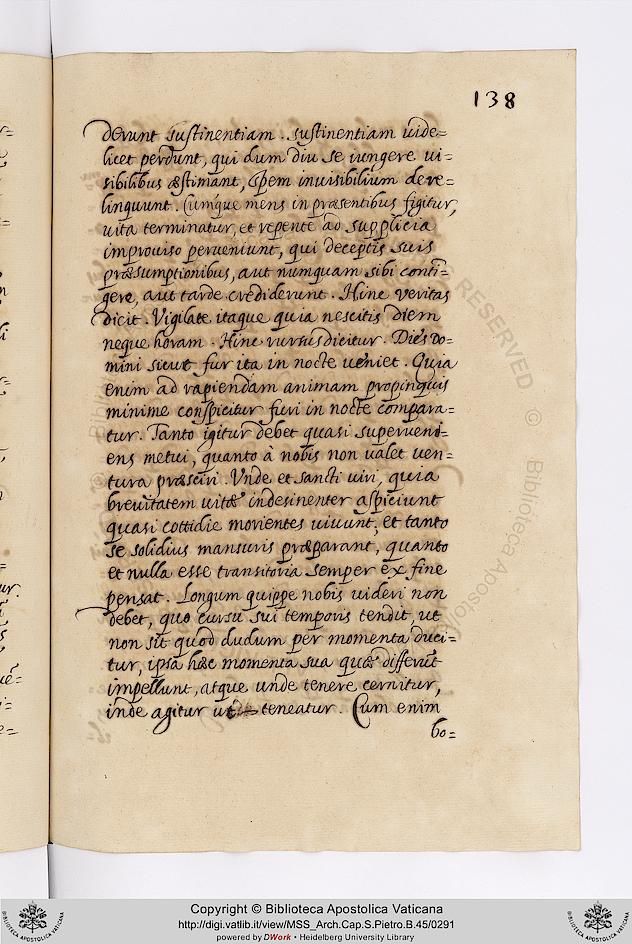 138
derunt sustinentiam. sustinentiam uide=
licet perdunt, qui dum diu se iungere ui=
sibilibus æstimant, spem inuisibilium dere=
linquunt. Cumque mens in præsentibus figitur,
uita terminatur, et repente ad supplicia
improuiso perueniunt, qui deceptis suis
præsumptionibus, aut numquam sibi conti=
gere, aut tarde crediderunt. Hinc veritas
dicit. Vigilate itaque quia nescitis diem
neque horam. Hinc rursus dicitur. Dies Do=
mini sicut fur ita in nocte ueniet. Quia
enim ad rapiendam animam propinquis
minime conspicitur furi in nocte compara=
tur. Tanto igitur debet quasi superueni=
ens metui, quanto à nobis non ualet uen=
tura præsciri. Vnde et sancti uiri, quia
breuitatem uitæ indesinenter aspiciunt
quasi cottidie morientes uiuunt, et tanto
se solidius mansuris præparant, quanto
et nulla esse transitoria semper ex fine
pensat. Longum quippe nobis uideri non
debet, quo cursu sui temporis tendit ut
non sit quod dudum per momenta duci=
tur, ipsa hæc momenta sua quæ differūt
impellunt, atque unde tenere cernitur,
inde agitur ut teneatur. Cum enim
bo=
RESERVED © Biblioteca Aposto
Copyright © Biblioteca Apostolica Vaticana
http://digi.vatlib.it/view/MSS_Arch.Cap.S.Pietro.B.45/0291
powered by DWork • Heidelberg University Library
BIBLIOTECA APOSTOLICA VATICANA
BIBLIOTECA APOSTOLICA VATICANA